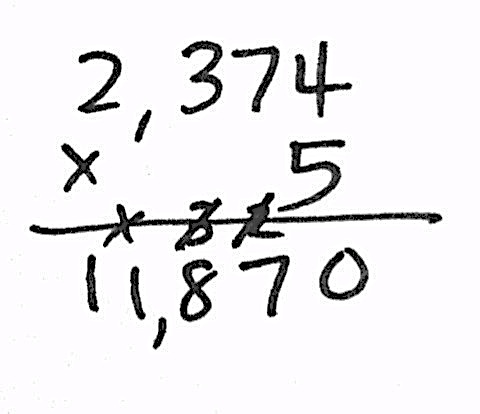 2,374
× 5
1 3 2
11,870